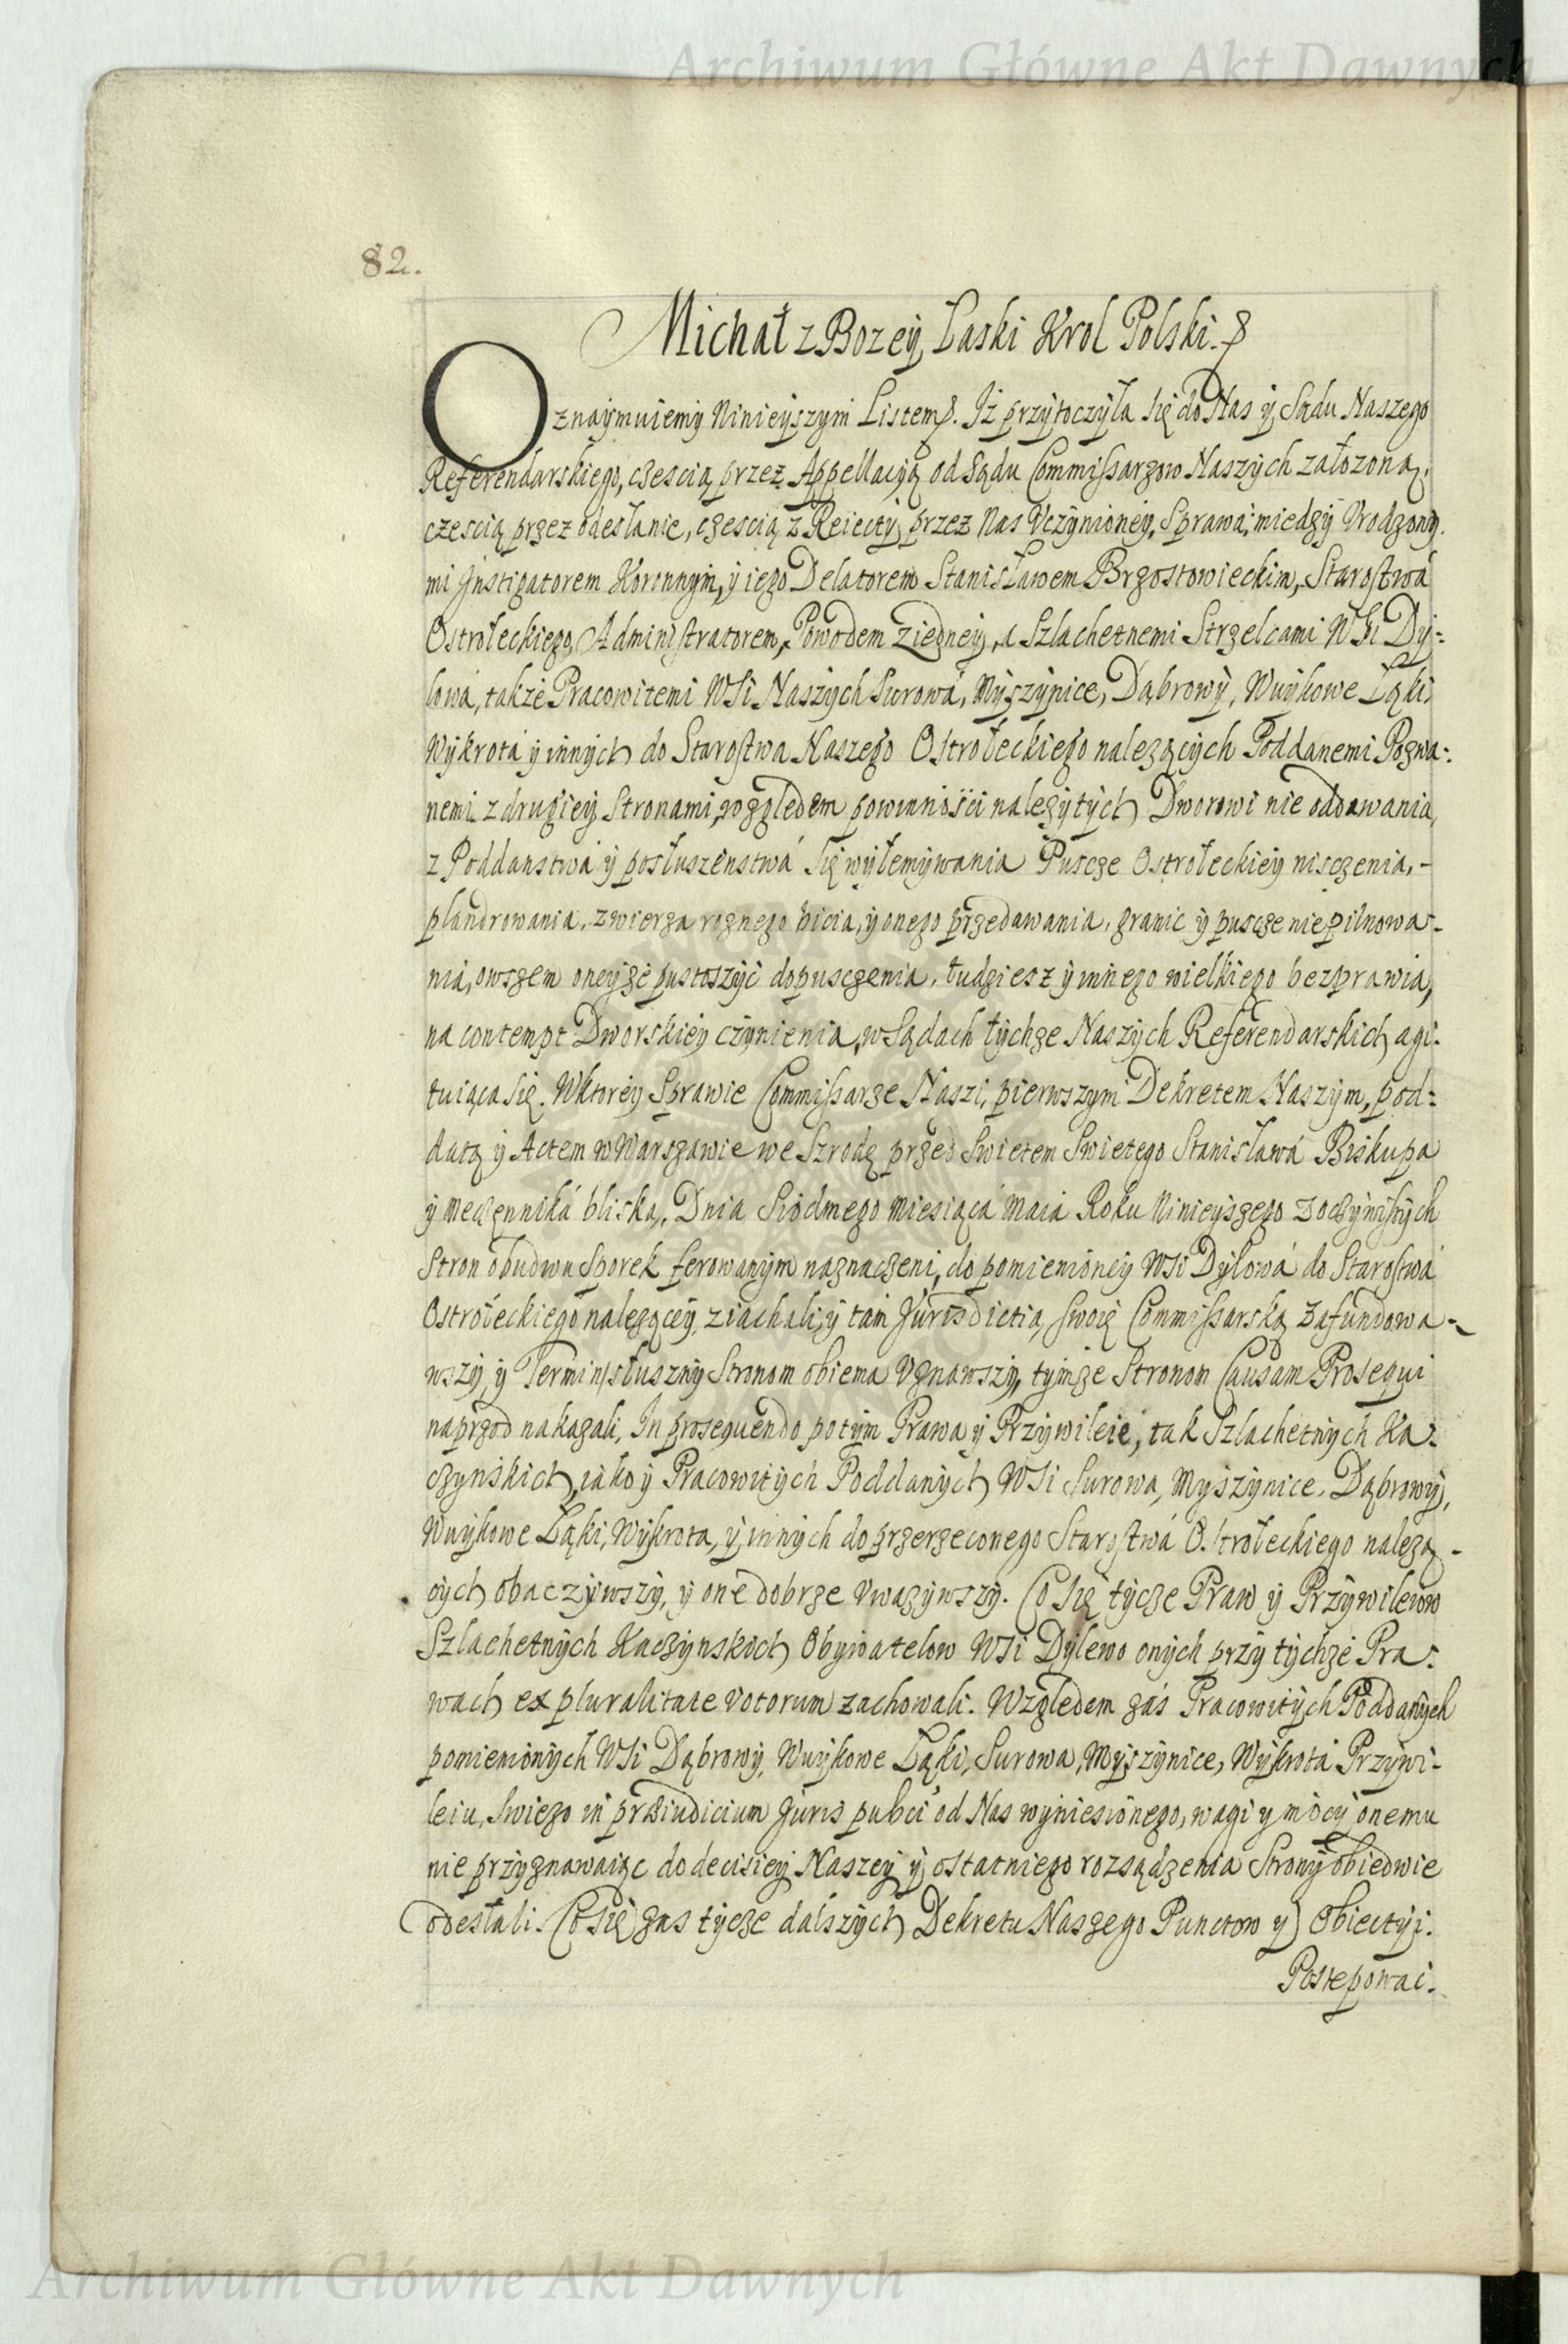 Archiwum Główne Akt Dawnych
82.
Michał z Bozey Laski Krol Polski.
Oznaymuiemy Ninieyszym Listem. Iż przytoczyła się do Nas y Sądu Naszego
Referendarskiego, częscią przez Appellacyą od Sądu Commissarzow Naszych założoną,
częscią przez odesłanie, częscią z Reiecty przez Nas Vczynioney, Sprawa, miedzy Vrodzony.
mi Instigatorem Koronnym, y iego Delatorem Stanisławem Brzostowieckim, Starostwá
Ostrołeckiego Administratorem, Powodem z iedney, a Szlachetnemi Strzelcami WSi Dy:
lowá, także Pracowitemi WSi Naszych Surowá, Myszynice, Dąbrowy, Wuykowe Ląki,
Wykrotá y innych do Starostwa Naszego Ostrołeckiego należących Poddanemi Pozwa:
nemi z drugiey Stronami, względem powinności należytych Dworowi nie oddawania,
z Poddanstwá y posłuszenstwá Się wyłemywania Puscze Ostrołeckiey nisczenia, -
plandrowania, zwierza roznego bicia, y onego przedawania, granic y puscze nie pilnowa-
nia, owszem oneyże pustoszyć dopusczenia, tudziesz y innego wielkiego bezprawia,
na contempt Dworskiey czynienia, w Sądach tychze Naszych Referendarskich agi-
tuiąca się. W ktorey Sprawie Commissarze Naszi, pierwszym Dekretem Naszym, pod:
datą y Actem w Warszawie we Szrodę przed Swietem Swietego Stanisławá Biskupa
y Męczenniká bliską, Dnia Siodmego Miesiącá Maiá Roku Ninieyszego z oczywistych
Stron obudwu Sporek ferowanym naznaczeni, do pomienioney WSi Dylowá do Starostwá
Ostrołeckiego należącey, ziachali, y tam Jurisdictią swoię Commissarską zafundowa-
wszy, y Termin słuszny Stronom obiema Vznawszy, tymże Stronom Causam Prosequi
naprzod nakazali, In prosequendo potym Prawa y Przywileie, tak Szlachetnych Ka:
czynskich, iako y Pracowitych Poddanych WSi Surowa, Myszynice, Dąbrowy,
Wuykowe Ląki, Wykrota, y innych do przerzeconego Starostwá Ostrołeckiego należą-
cych obaczywszy, y one dobrze Vważywszy. Co Się tycze Praw y Przywileiow
Szlachetnych Kaczynskich Obywatelow WSi Dylewo onych przy tychże Pra:
wach ex pluralitate votorum zachowali. Względem zaś Pracowitych Poddanych
pomienionych WSi Dąbrowy, Wuykowe Ląki, Surowa, Myszynice, Wykrotá Przywi-
leiu, Swiezo in præiudicium Juris pubci od Nas wyniesionego, wagi y mocy onemu
nie przyznawaiąc do decisiey Naszey y ostatniego rozsądzenia Strony obiedwie
odesłali. Co Się zas tycze dalszych Dekretu Naszego Punctow y Obiectyi.
Postepowai.
Archiwum Główne Akt Dawnych